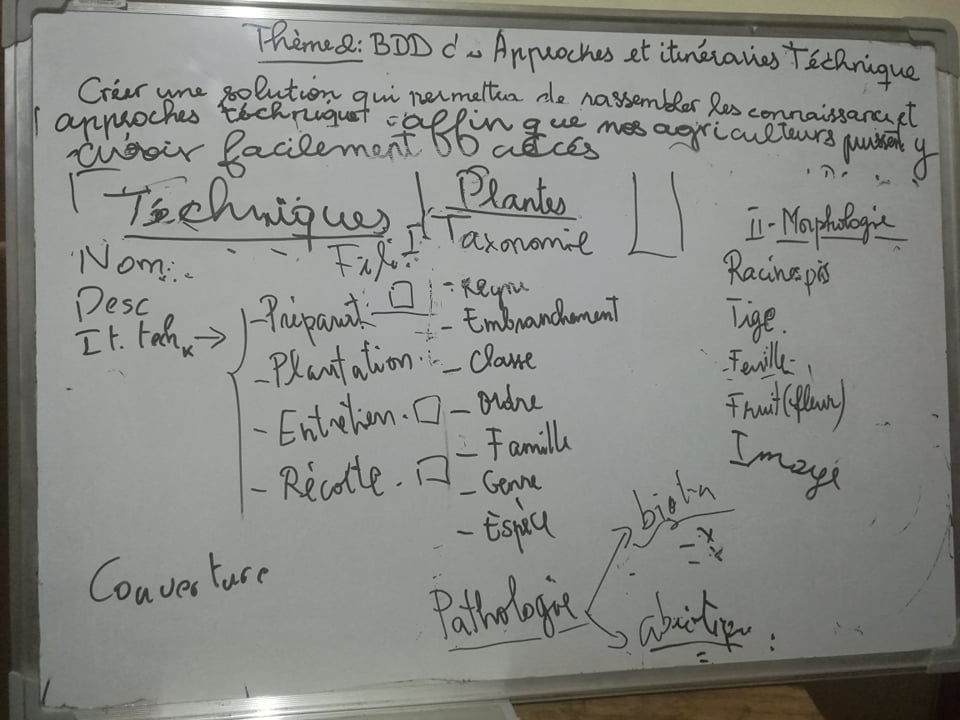 Thème2: BDD des Approches et itinéraires Téchnique
Créer une solution qui permettra de rassembler les connaissances et
approches téchniques affin que nos agriculteurs puissent y
avoir facilement accés
Téchniques
Nom
Desc
It. tech
- Préparat.
- Plantation.
- Entrétien.
- Récolte.
Couverture
Plantes
I Taxonomie
- Embranchement
- Classe
- Ordre
- Famille
- Genre
- Espèce
Pathologie
abiotique
II - Morphologie
Racines
Tige.
Feuille
Fruit (fleur)
Image